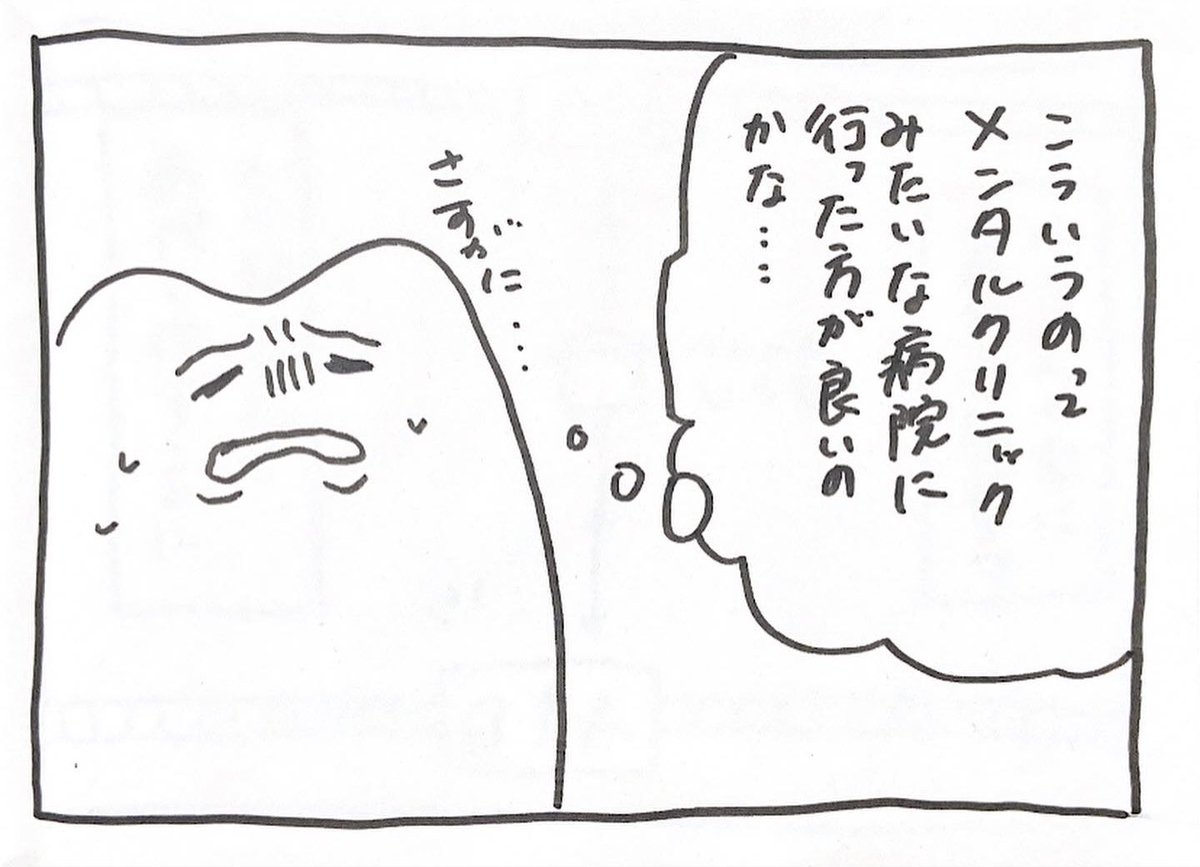 こういうのって
メンタルクリニック
みたいな病院に
行った方が良いの
かな……
さすがに……